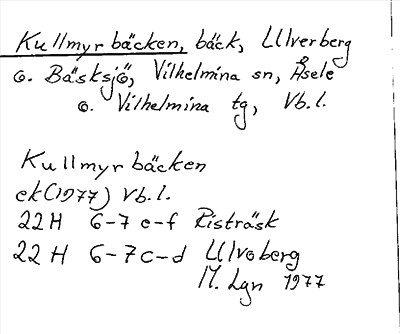 Kullmyrbäcken, bäck, Ulverberg
o. Bäsksjö, Vilhelmina sn, Åsele
o. Vilhelmina tg, Vb. l.
Kullmyrbäcken
ek (1977) Vb. l.
22 H 6-7 e-f Risträsk
22 H 6-7 c-d Ulvoberg
M. Lgn 1977